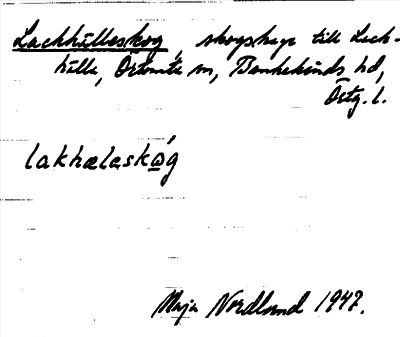 Lackhälleskog, skogshage till Lack-
hälla, Örtomta sn, Bankekinds hd,
Östg. l.
lakhælaskǫ́g
Maja Nordlund 1947.